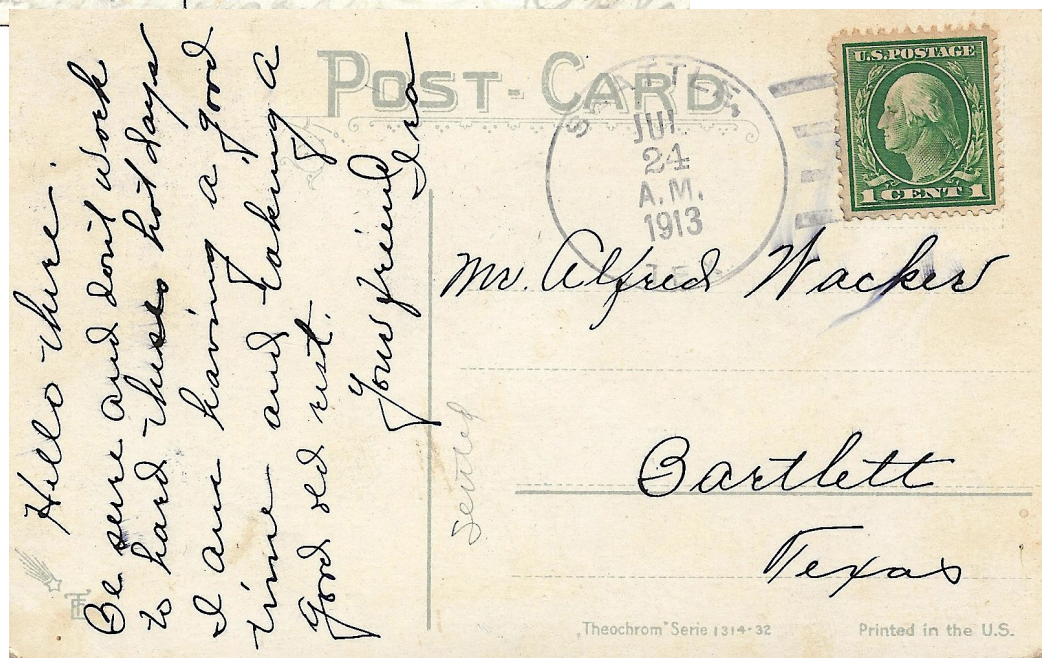 POST-CARD
SEATTLE,
JUL
24
A.M.
1913
TEX.
U.S. POSTAGE
1 CENT 1
Hello there.
Be sure and dont work
to hard these hot days
I am having a good
time and taking a
good old rest.
Your friend
Ira
Mr. Alfred Wacker
Bartlett
Texas
"Theochrom" Serie 1314-32
Printed in the U.S.